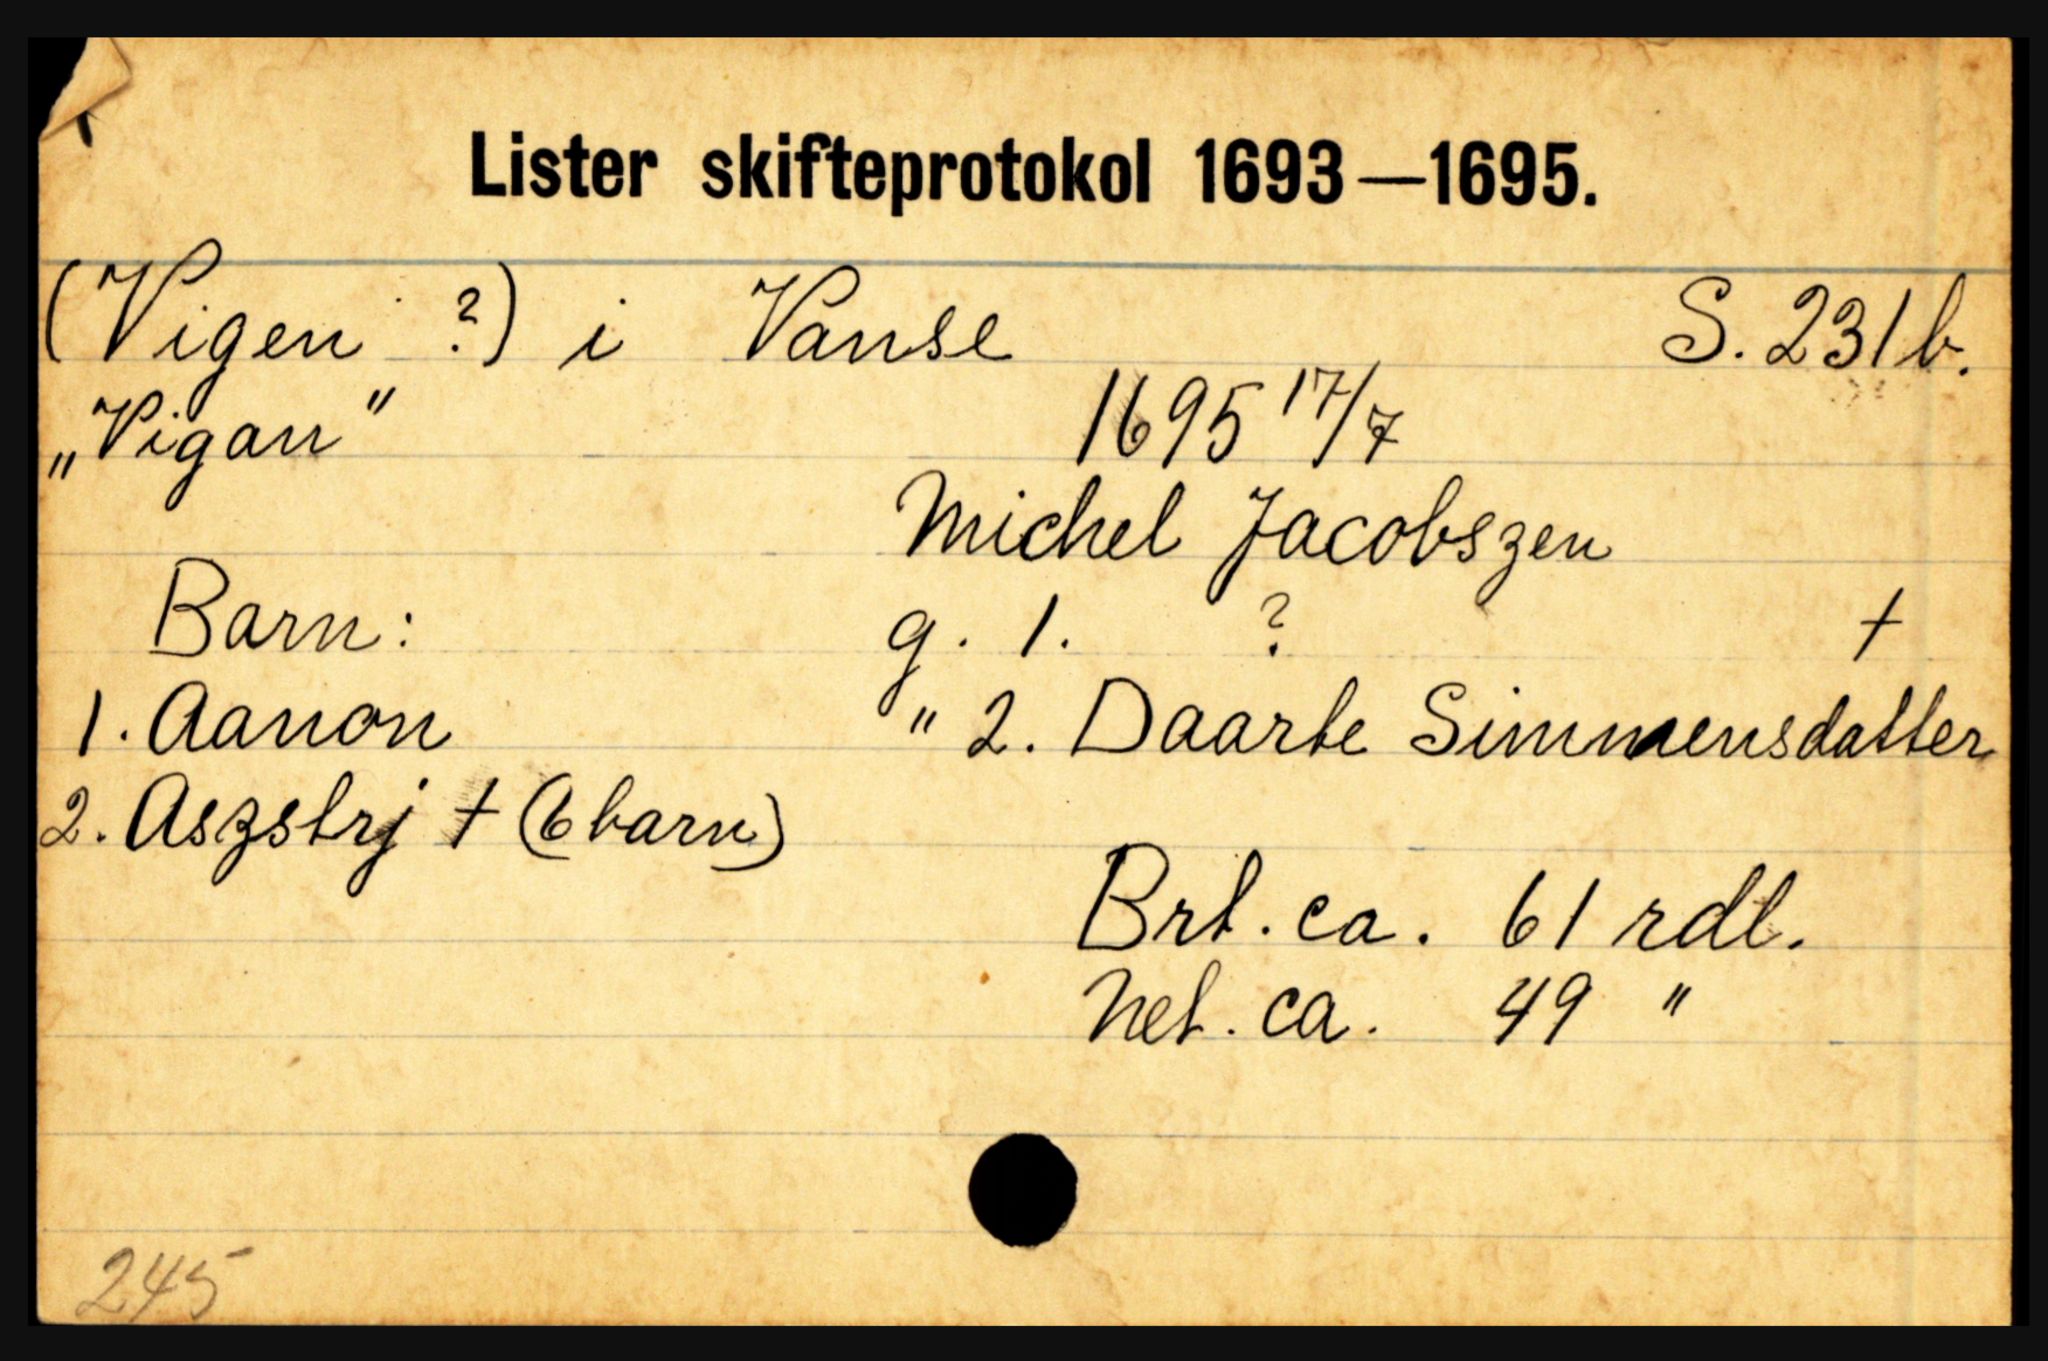 Lister skifteprotokol 1693—1695.
(Vigen ?) i Vanse S. 231b.
„Vigan" 1695 17/7
Michel Jacobszen
Barn: g. 1. ? †
1. Aanon " 2. Daarte Simmensdatter
2. Aszstrj † (6 barn)
Brt. ca. 61 rdl.
Net. ca. 49 "
245